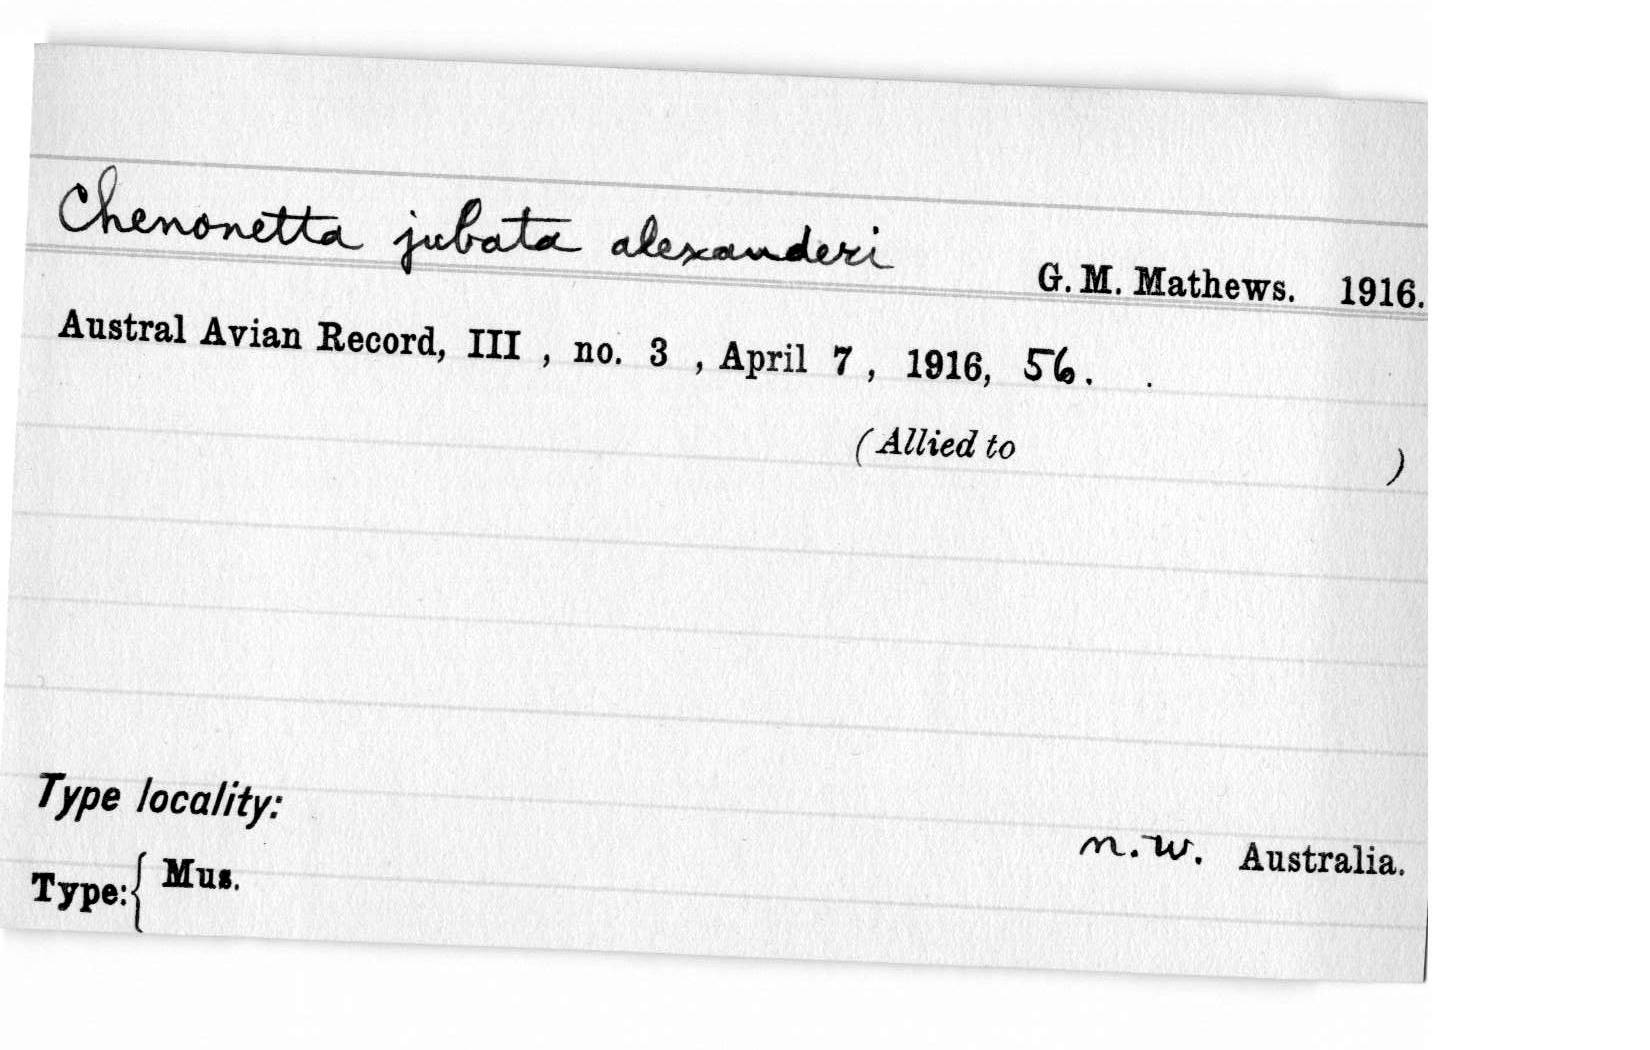 Chenonetta jubata alexanderi G. M. Mathews. 1916.
Austral Avian Record, III , no. 3 , April 7 , 1916, 56. .
(Allied to )
Type locality:
n.w. Australia.
Type:{ Mus.